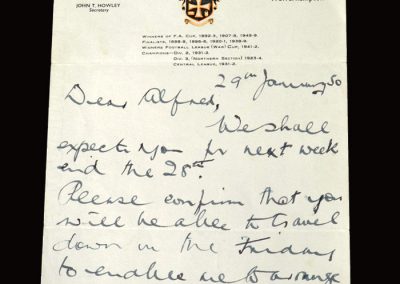 JOHN T. HOWLEY
Secretary
WINNERS OF F.A. CUP, 1892-3, 1907-8, 1948-9.
FINALISTS, 1888-9, 1895-6, 1920-1, 1938-9.
WINNERS FOOTBALL LEAGUE (WAR) CUP, 1941-2.
CHAMPIONS—DIV. 2, 1931-2.
DIV. 3, (NORTHERN SECTION) 1923-4.
CENTRAL LEAGUE, 1931-2.
29th January 50
Dear Alfred,
We shall
expect you for next week
end the 28th.
Please confirm that you
will be able to travel
down on the Friday
to enable me to arrange